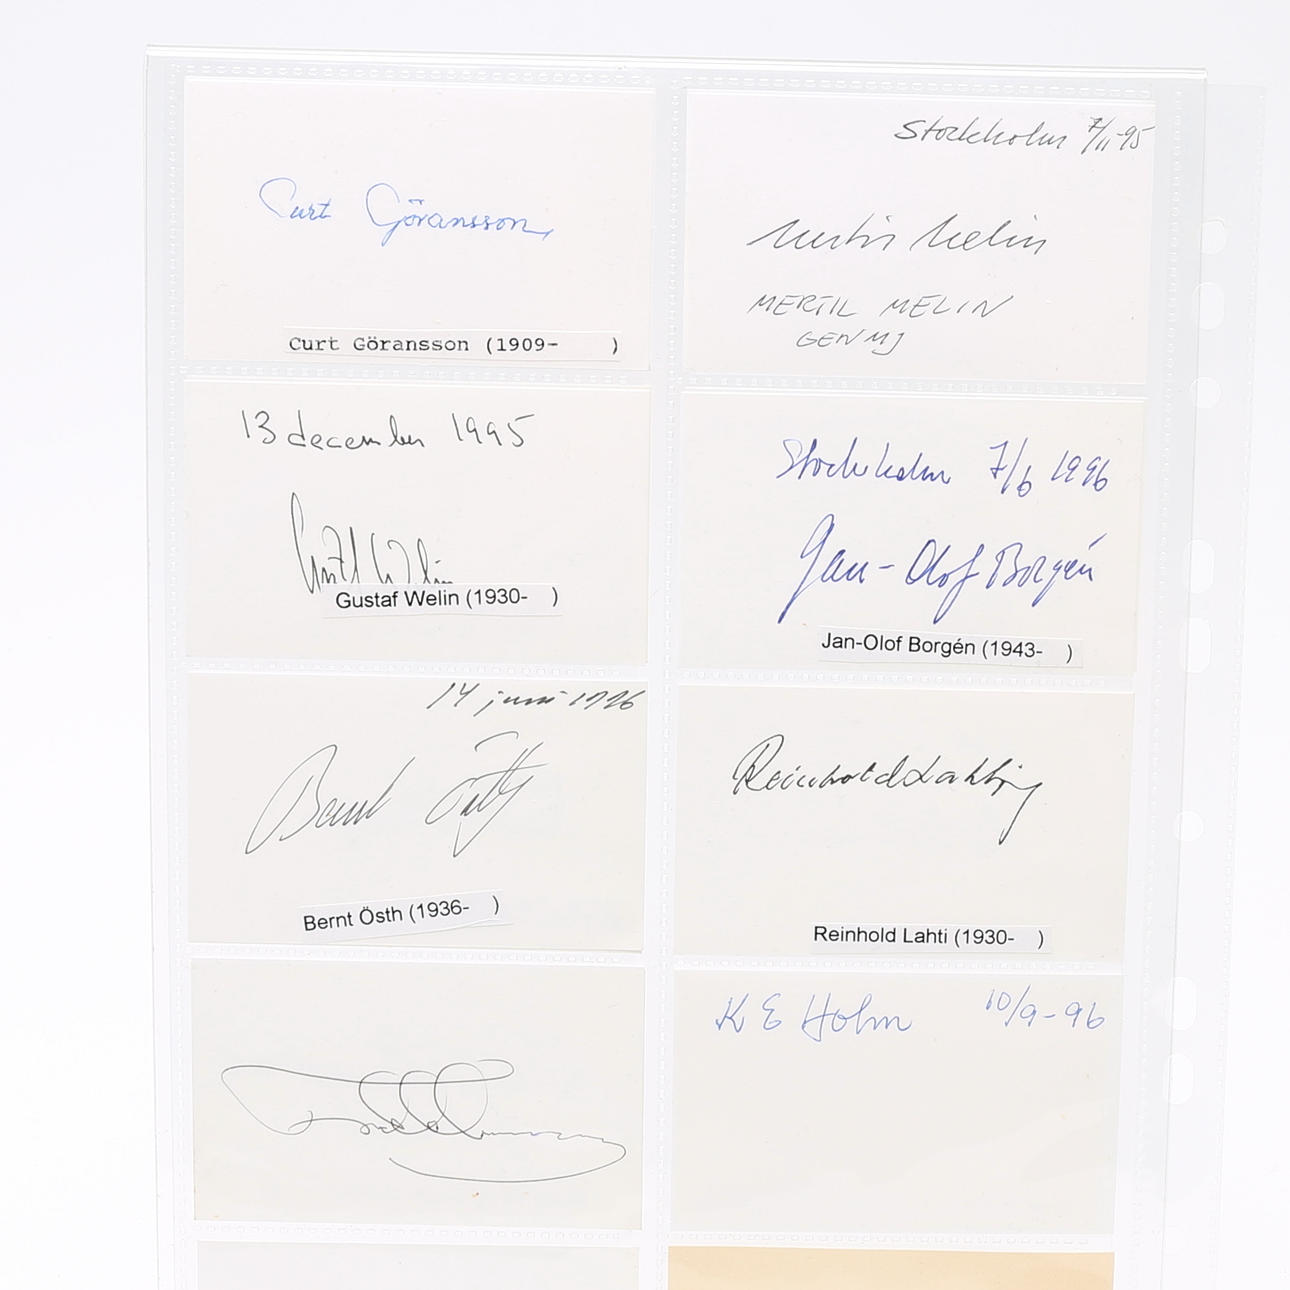 Curt Göransson
Curt Göransson (1909-      )
Stockholm 7/11-95
Mertil Melin
MERTIL MELIN
GENMJ
13 december 1995
Gustaf Welin (1930-    )
Stockholm 7/6 1996
Jan-Olof Borgén
Jan-Olof Borgén (1943-    )
14 juni 1996
Bernt Östh
Bernt Östh (1936-    )
Reinhold Lahti
Reinhold Lahti (1930-    )
K E Holm 10/9-96